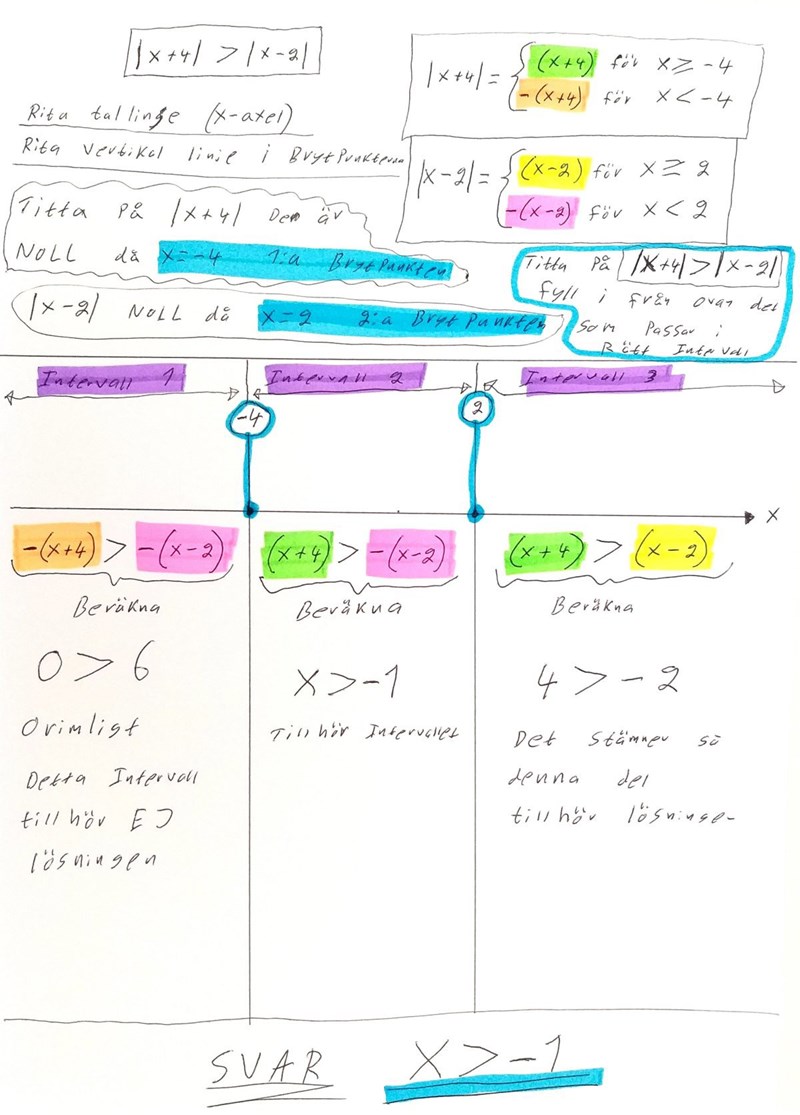 |x+4| > |x-2|
Rita tallinje (x-axel)
Rita vertikal linie i BrytPunkterna
|x+4| = { (x+4) för x ≥ -4
-(x+4) för x < -4
|x-2| = { (x-2) för x ≥ 2
-(x-2) för x < 2
Titta På |x+4| Den är
NOLL då x=-4 1:a BrytPunkten
|x-2| NOLL då x=2 2:a BrytPunkten
Titta På |x+4|>|x-2|
fyll i från ovan det
som Passar i
Rätt Intervall
Intervall 1 Intervall 2 Intervall 3
-4 2
x
-(x+4) > -(x-2) (x+4) > -(x-2) (x+4) > (x-2)
Beräkna Beräkna Beräkna
0 > 6 x > -1 4 > -2
Orimligt
Detta Intervall
tillhör EJ
lösningen
Tillhör Intervallet
Det stämmer så
denna del
tillhör lösningen
SVAR x > -1